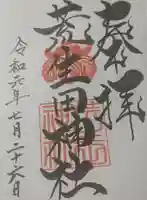 奉拝
荒生田神社
令和六年七月二十六日